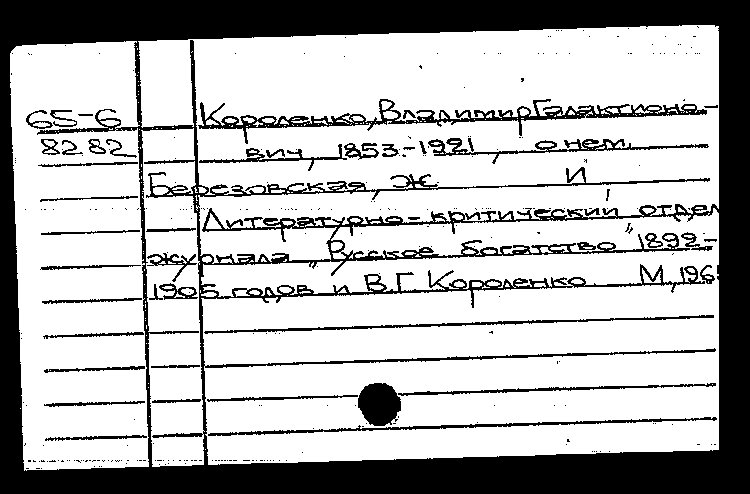 65-6 Короленко, Владимир Галактионо-
8282 вич, 1853-1921, о нем.
Березовская, Ж. И.
Литературно-критический отдел
журнала "Русское богатство" 1892-
1905 годов и В.Г. Короленко. М, 196